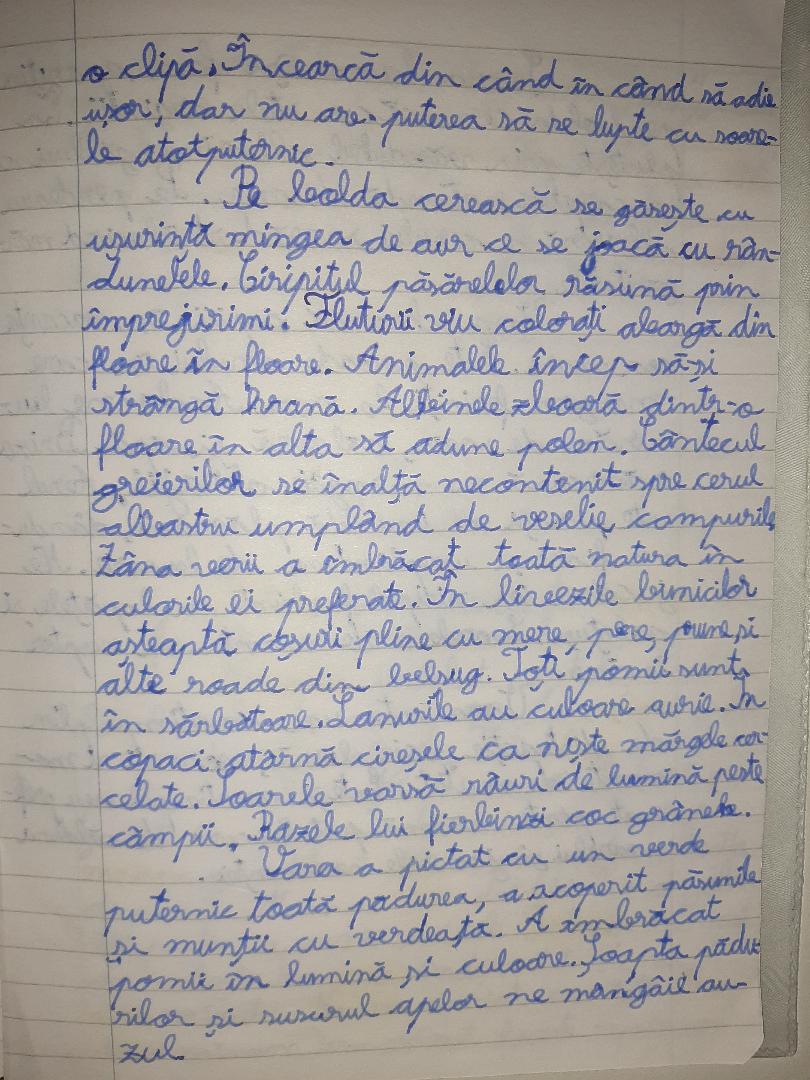 o clipă. Încearcă din când în când să adie
ușor, dar nu are puterea să se lupte cu soare-
le atotputernic.
Pe bolda cerească se găsește cu
ușurință mingea de aur ce se joacă cu rân-
dunelele. Ciripitul păsărelelor răsună prin
împrejurimi. Fluturii viu colorați aleargă din
floare în floare. Animalele încep să-și
strângă hrană. Albinele zboară dintr-o
floare în alta să adune polen. Cântecul
greierilor se înalță necontenit spre cerul
albastru umplând de veselie compurile
Zâna verii a îmbrăcat toată natura în
culorile ei preferate. În livezile bunicilor
așteaptă coșuri pline cu mere, pere, prune și
alte roade din belsug. Toți pomii sunt
în sărbătoare. Lanurile au culoare aurie. În
copaci atârnă cireșele ca niște mărgele cer-
celate. Soarele varsă râuri de lumină peste
câmpii. Razele lui fierbinzi coc grânele.
Vara a pictat cu un verde
puternic toată pădurea, a acoperit pășunile
și munții cu verdeață. A îmbrăcat
pomii în lumină și culoare. Șoapta pădu-
rilor și susurul apelor ne mângâie au-
zul.